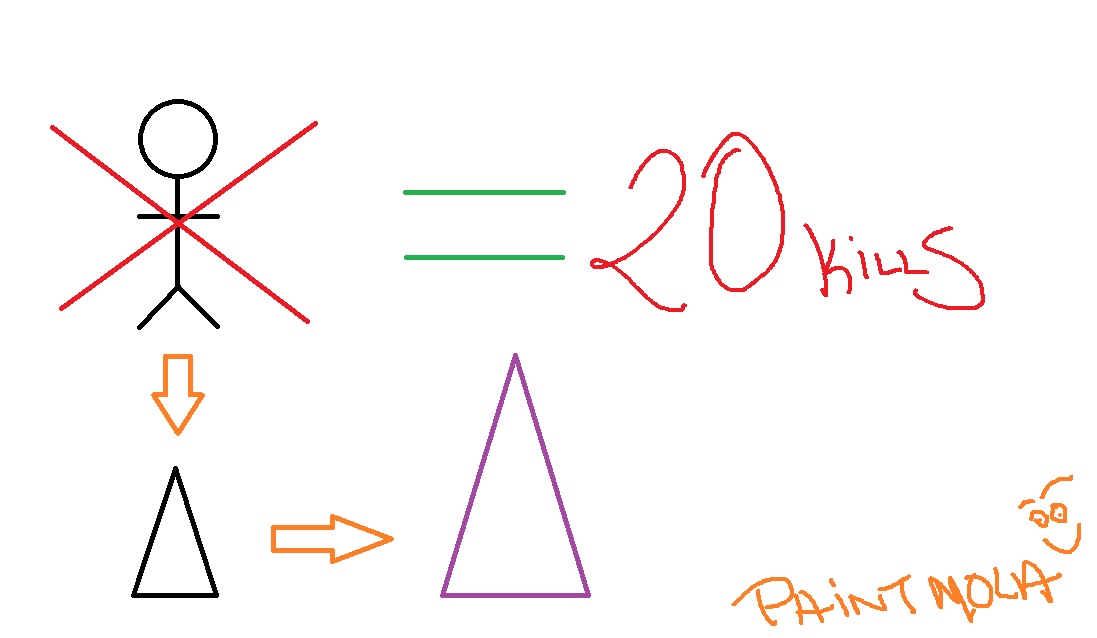 20 KiLLS
PAiNT MOLA